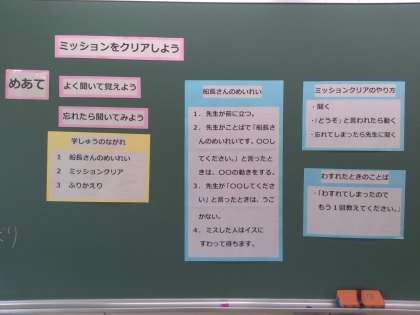 ミッションをクリアしよう
めあて
よく聞いて覚えよう
忘れたら聞いてみよう
学しゅうのながれ
1 船長さんのめいれい
2 ミッションクリア
3 ふりかえり
船長さんのめいれい
1．先生が前に立つ。
2．先生がことばで「船長さ
んのめいれいです。〇〇し
てください。」と言ったと
きは、〇〇の動きをする。
3．先生が「〇〇してくださ
い」と言ったときは、うご
かない。
4．ミスした人はイスに
すわって待ちます。
ミッションクリアのやり方
・聞く
・「どうぞ」と言われたら動く
・忘れてしまったら先生に聞く
わすれたときのことば
・「わすれてしまったので
もう1回教えてください。」